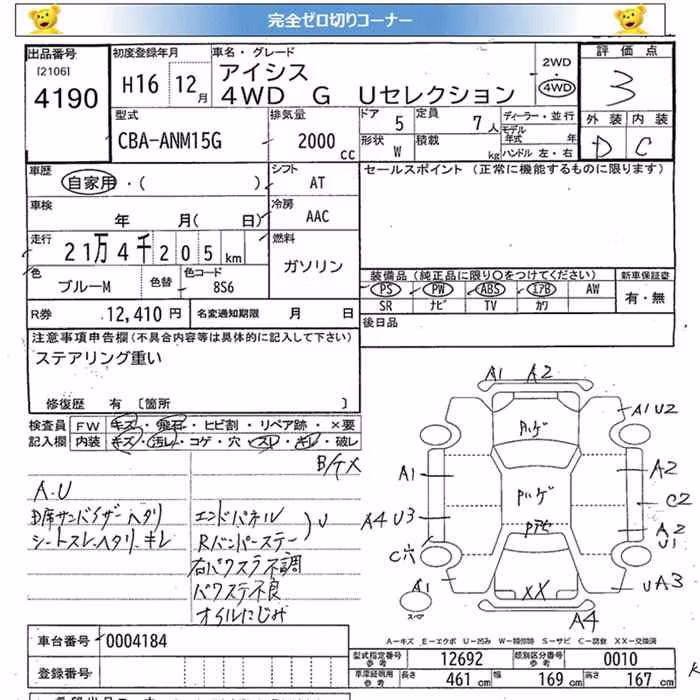 完全ゼロ切りコーナー
出品番号
[2106]
4190
初度登録年月
H16 12月
車名・グレード
アイシス
4WD G Uセレクション
2WD
4WD
評価点
3
外装 内装
D C
型式
CBA-ANM15G
排気量
2000 cc
ドア 5
定員 7人
形状 W
積載 kg
ディーラー・並行
モデル年式 年
ハンドル 左・右
車歴
自家用・( )
シフト
AT
セールスポイント (正常に機能するものに限ります)
車検
年 月( 日)
冷房
AAC
走行
21万4千205km
燃料
ガソリン
色
ブルーM
色替
色コード
8S6
装備品(純正品に限り○をつけてください)
新車保証書
PS PW ABS エアB AW
SR ナビ TV カワ
有・無
R券 12,410円
名変通知期限 月 日
後日品
注意事項申告欄(不具合内容等は具体的に記入して下さい)
ステアリング重い
修復歴 有 [箇所 ]
検査員記入欄
FW キズ・飛石・ヒビ割・リペア跡・×要
内装 キズ・汚レ・コゲ・穴・スレ・キレ・破レ
A.U
D席サンバイザーヘタリ
シートスレ.ヘタリ.キレ
エンドパネル
Rバンパーステー
U
右パワスラ不調
パワステ不良
オイルにじみ
A1 A2
A1U2
ハゲ
A1
A2
ハゲ
C2
A4 U3
A2
U1
C穴
A1
UA3
XX
スペア
A4
A-キズ E-エクボ U-凹み W-補修跡 S-サビ C-腐食 XX-交換済
車台番号 0004184
登録番号
型式指定番号 参考 12692
類別区分番号 参考 0010
車庫証明用 参考
長さ 461 cm
幅 169 cm
高さ 167 cm